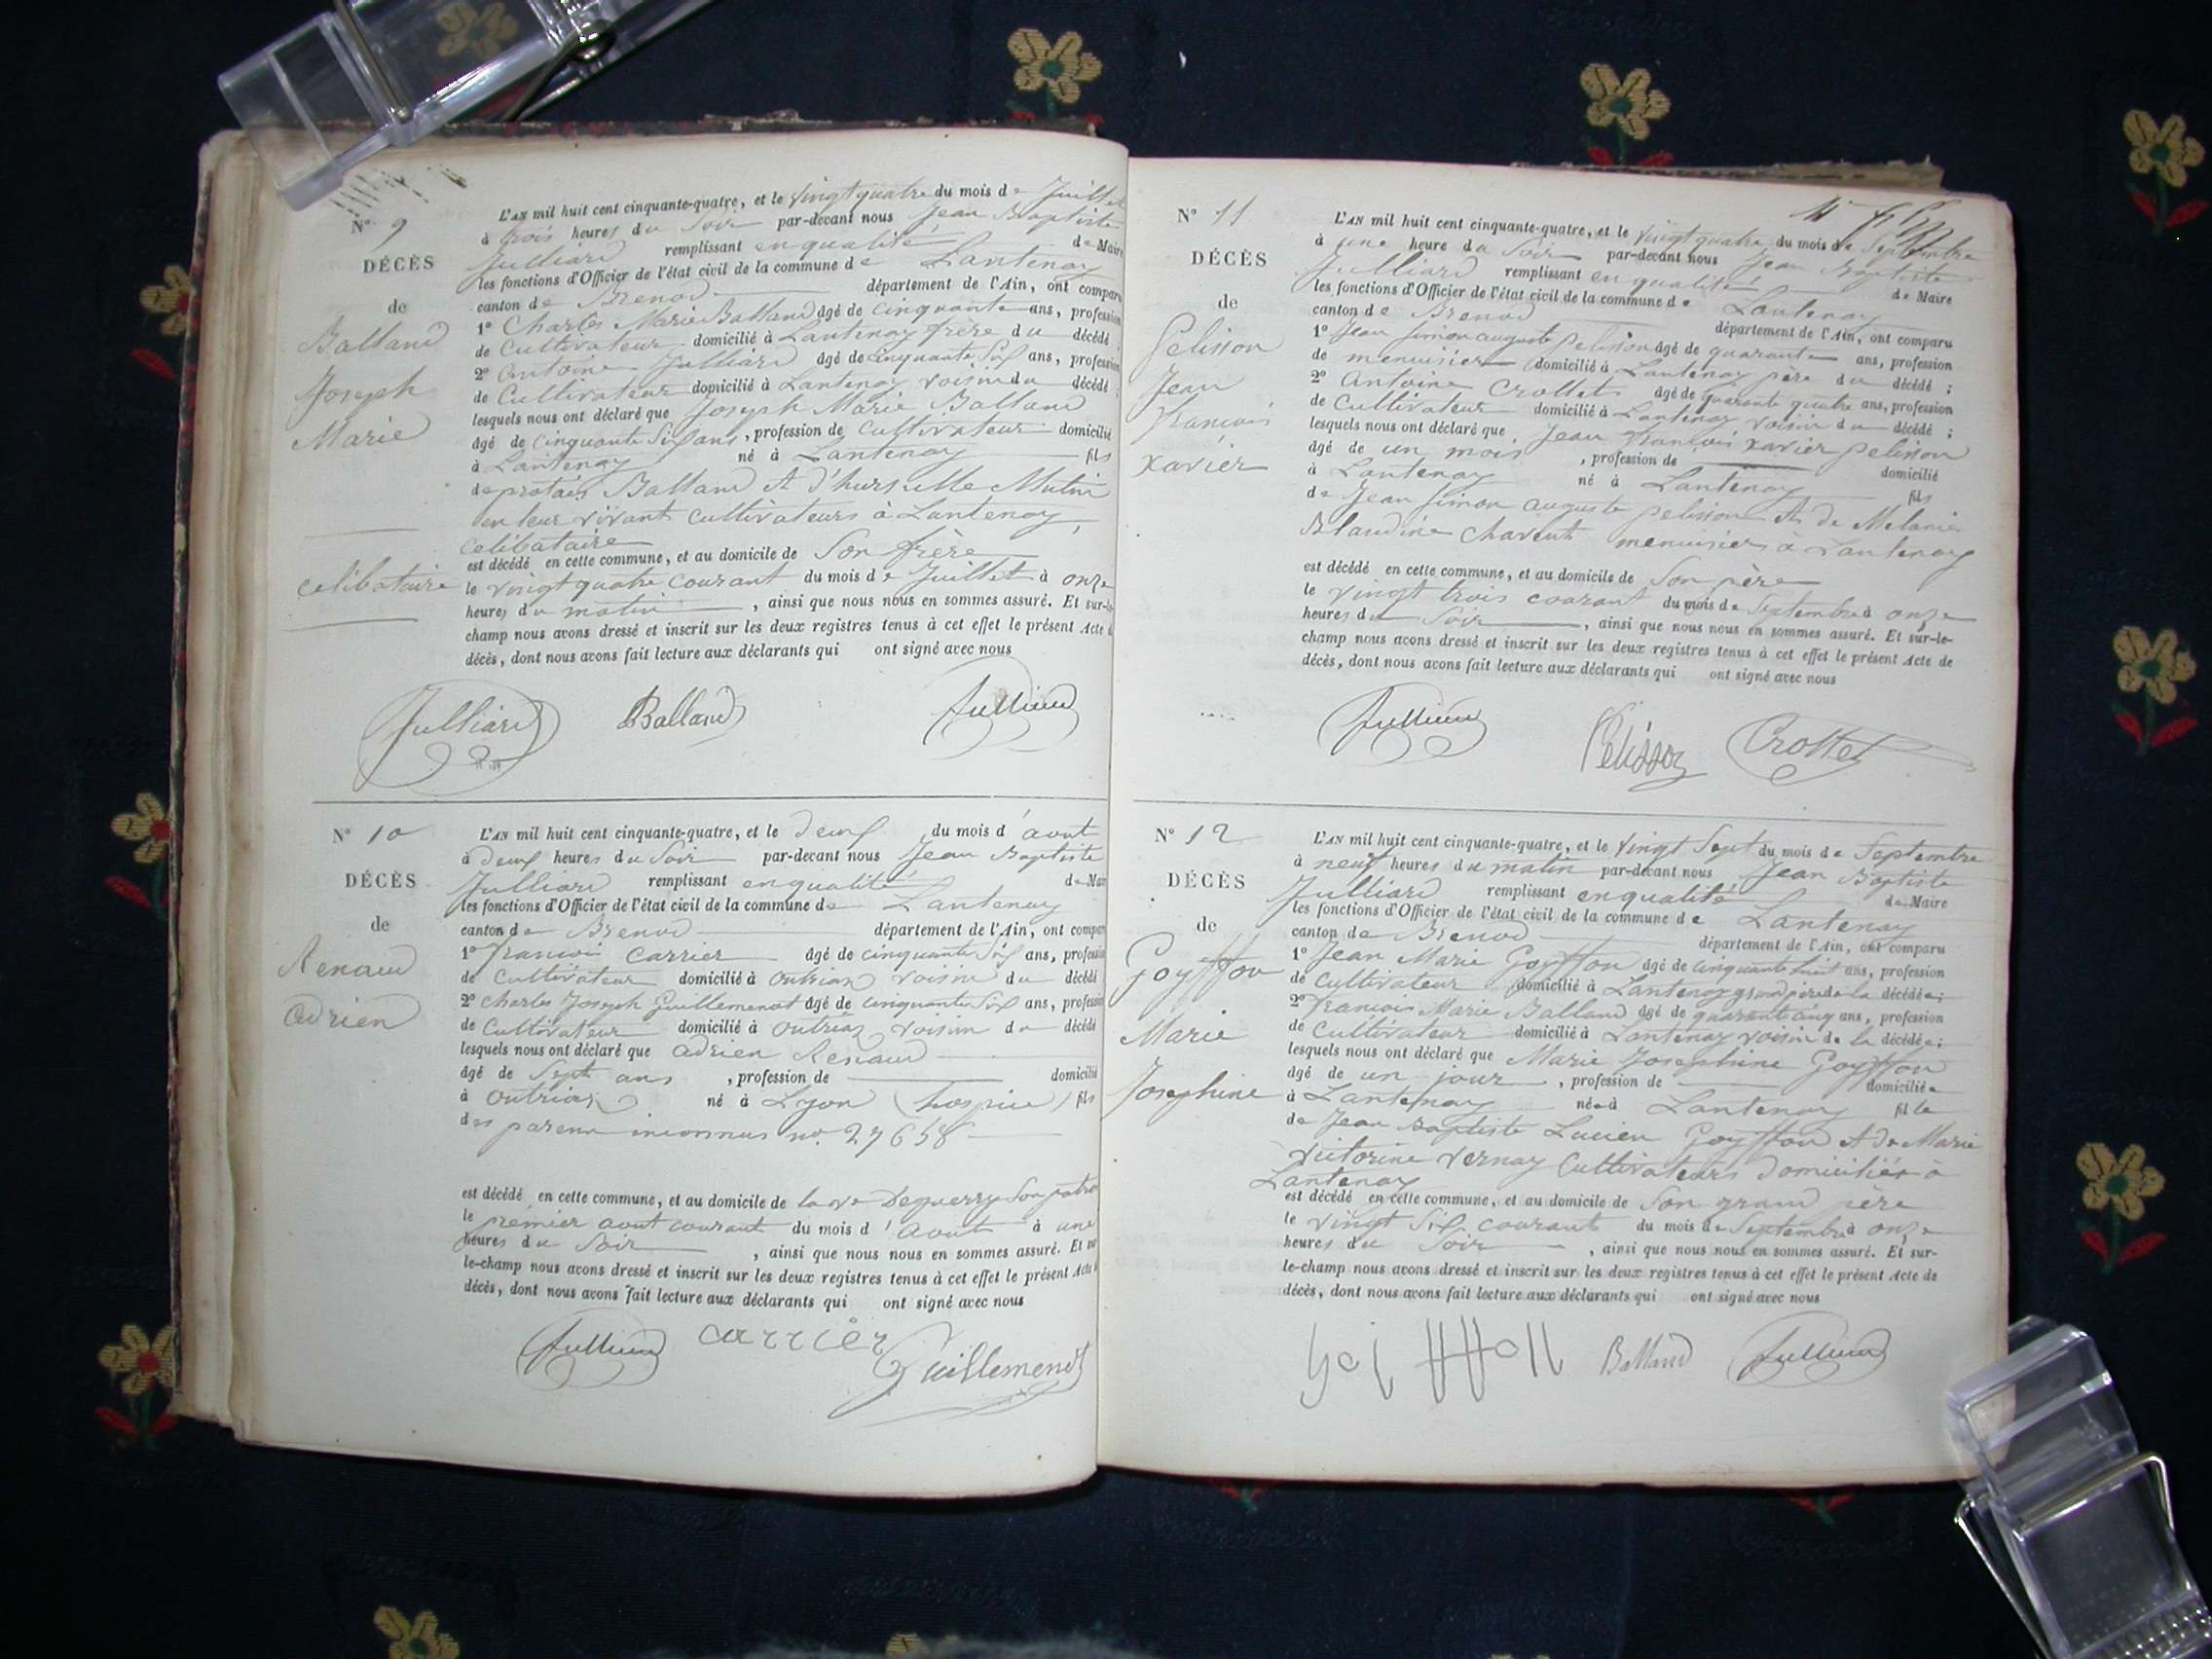 N° 9
DÉCÈS
de
Balland
Joseph
Marie
celibataire
L'AN mil huit cent cinquante-quatre, et le vingt quatre du mois de Juillet
à trois heures du Soir par-devant nous Jean Baptiste
Julliard remplissant en qualité de Maire
les fonctions d'Officier de l'état civil de la commune de Lantenay
canton de Brenod département de l'Ain, ont comparu
1° Charles Marie Balland âgé de cinquante ans, profession
de Cultivateur domicilié à Lantenay frère du décédé ;
2° Antoine Julliard âgé de cinquante Six ans, profession
de Cultivateur domicilié à Lantenay voisin du décédé ;
lesquels nous ont déclaré que Joseph Marie Balland
âgé de cinquante Six ans, profession de Cultivateur domicilié
à Lantenay né à Lantenay fils
de protais Balland et d'hursulle Mutin
en leur vivant cultivateurs à Lantenay,
celibataire
est décédé en cette commune, et au domicile de Son frère
le vingt quatre courant du mois de Juillet à onze
heures du matin, ainsi que nous nous en sommes assuré. Et sur-le-
champ nous avons dressé et inscrit sur les deux registres tenus à cet effet le présent Acte d
décès, dont nous avons fait lecture aux déclarants qui ont signé avec nous
Julliard Balland Julliard
N° 10
DÉCÈS
de
Renaud
adrien
L'AN mil huit cent cinquante-quatre, et le deux du mois d'aout
à deux heures du Soir par-devant nous Jean Baptiste
Julliard remplissant en qualité de Mair
les fonctions d'Officier de l'état civil de la commune de Lantenay
canton de Brenod département de l'Ain, ont compar
1° francois Carrier âgé de cinquante Six ans, profession
de Cultivateur domicilié à outriaz voisin du décédé
2° Charles Joseph Guillemenot âgé de cinquante Six ans, profession
de Cultivateur domicilié à outriaz voisin du décédé
lesquels nous ont déclaré que adrien Renaud
âgé de Sept ans, profession de domicilié
à outriaz né à Lyon (hospice) fils
des parens inconnus no. 27658
est décédé en cette commune, et au domicile de la ve Deguerry Son
le premier aout courant du mois d'aout à une
heures du Soir, ainsi que nous nous en sommes assuré. Et sur
le-champ nous avons dressé et inscrit sur les deux registres tenus à cet effet le présent Acte d
décès, dont nous avons fait lecture aux déclarants qui ont signé avec nous
Julliard carrier Guillemenot
N° 11
DÉCÈS
de
Pelisson
Jean
francois
xavier
L'AN mil huit cent cinquante-quatre, et le vingt quatre du mois de Septembre
à une heure du Soir par-devant nous Jean Baptiste
Julliard remplissant en qualité de Maire
les fonctions d'Officier de l'état civil de la commune de Lantenay
canton de Brenod département de l'Ain, ont comparu
1° Jean Simon auguste Pelisson âgé de quarante ans, profession
de menuisier domicilié à Lantenay père du décédé ;
2° Antoine Crollet âgé de quarante quatre ans, profession
de Cultivateur domicilié à Lantenay voisin du décédé ;
lesquels nous ont déclaré que Jean francois xavier pelisson
âgé de un mois, profession de domicilié
à Lantenay né à Lantenay fils
de Jean Simon auguste pelisson et de Melanie
Blandine Chavent menuisiers à Lantenay
est décédé en cette commune, et au domicile de Son père
le vingt trois courant du mois de Septembre à onze
heures du Soir, ainsi que nous nous en sommes assuré. Et sur-le-
champ nous avons dressé et inscrit sur les deux registres tenus à cet effet le présent Acte de
décès, dont nous avons fait lecture aux déclarants qui ont signé avec nous
Julliard Pélisson Crottet
N° 12
DÉCÈS
de
Goyffon
Marie
Josephine
L'AN mil huit cent cinquante-quatre, et le vingt Sept du mois de Septembre
à neuf heures du matin par-devant nous Jean Baptiste
Julliard remplissant en qualité de Maire
les fonctions d'Officier de l'état civil de la commune de Lantenay
canton de Brenod département de l'Ain, ont comparu
1° Jean Marie Goyffon âgé de cinquante huit ans, profession
de Cultivateur domicilié à Lantenay grand père de la décédée ;
2° francois Marie Balland âgé de quarante cinq ans, profession
de Cultivateur domicilié à Lantenay voisin de la décédée ;
lesquels nous ont déclaré que Marie Josephine Goyffon
âgé de un jour, profession de domiciliée
à Lantenay née à Lantenay fille
de Jean Baptiste Lucien Goyffon et de Marie
victorine vernay Cultivateurs domiciliés à
Lantenay
est décédé en cette commune, et au domicile de Son grand père
le vingt Six courant du mois de Septembre à onze
heures du Soir, ainsi que nous nous en sommes assuré. Et sur-
le-champ nous avons dressé et inscrit sur les deux registres tenus à cet effet le présent Acte de
décès, dont nous avons fait lecture aux déclarants qui ont signé avec nous
goiffon Balland Julliard